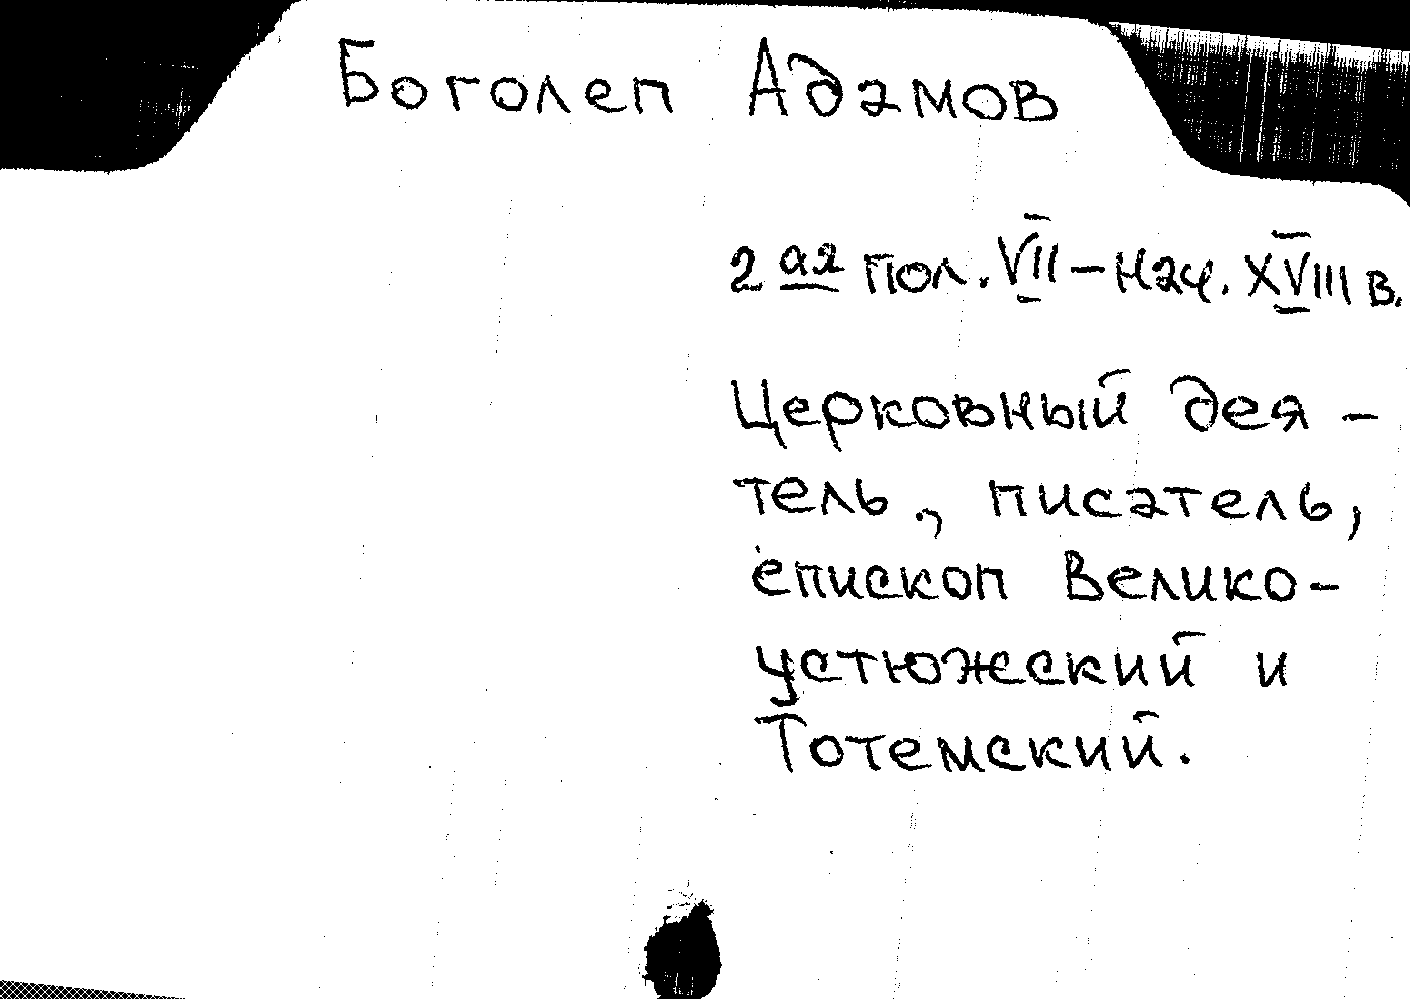 Боголеп Адамов
2ая пол. VII – нач. XVIII в.
Церковный дея-
тель, писатель,
епископ Велико-
устюжский и
Тотемский.